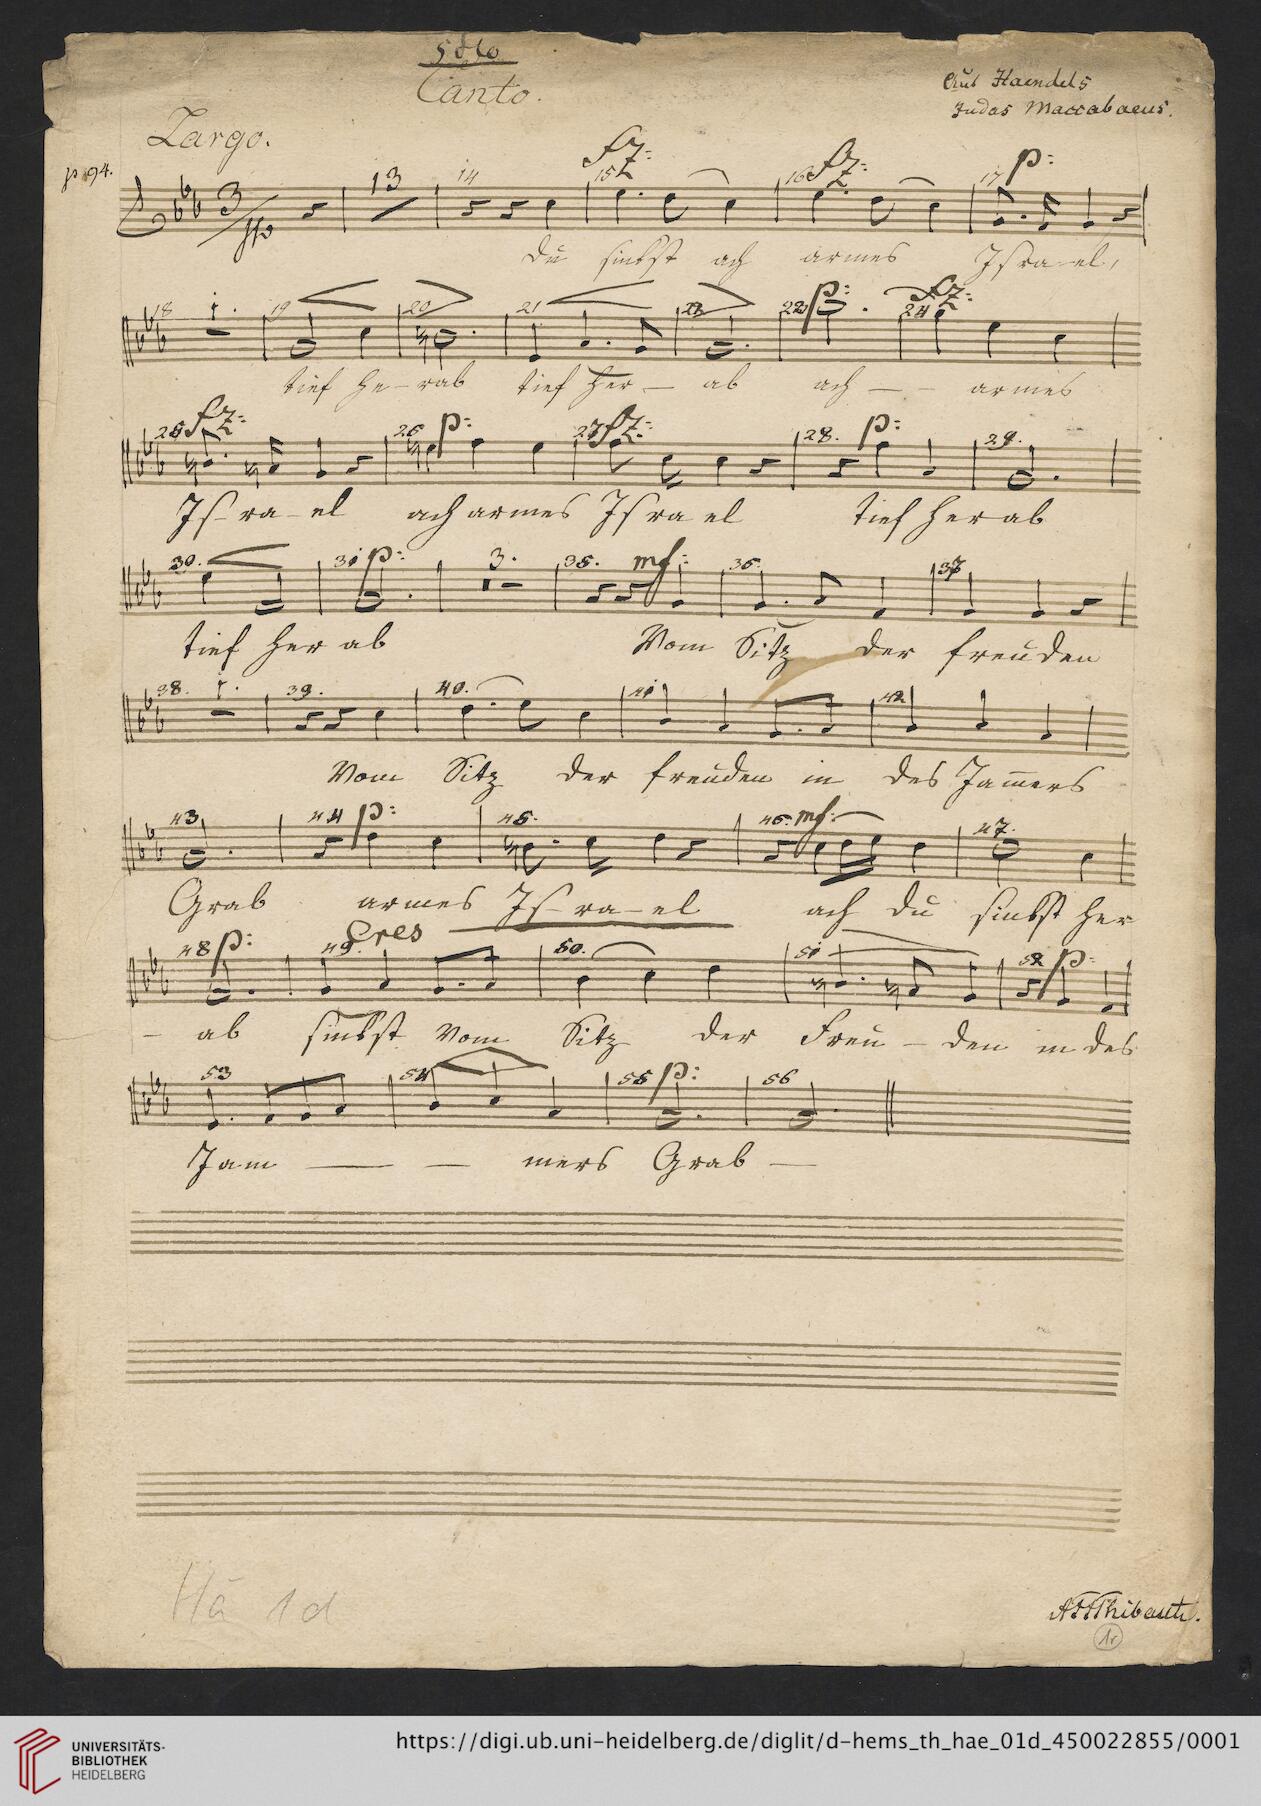 Solo
Canto.
Aus Haendels
Judas Maccabaeus.
Largo.
p. 94.
13 14 fz: 15 16 fz: 17 p:
du sinkst ach armes Israel,
18 1. 19 20 21 22 23 p: 24 fz:
tief he - rab tief her - ab ach - - armes
25 fz: 26 p: 27 fz: 28. p: 29.
Is - ra - el ach armes Israel tief herab
30. 31 p: 3. 35. mf: 36. 37
tief herab Vom Sitz der freuden
38. 1. 39. 40. 41 42
Vom Sitz der freuden in des Jam̅ers
43 44 p: 45. 46. mf: 47.
Grab armes Is - ra - el ach du sinkst her
48 p: 49. Cres 50. 51 52 p:
- ab sinkst vom Sitz der Freu - den in des
53 54 55 p: 56
Jam - - mers Grab -
Hä 1d
Thibaut.
1r
UNIVERSITÄTS-
BIBLIOTHEK
HEIDELBERG
https://digi.ub.uni-heidelberg.de/diglit/d-hems_th_hae_01d_450022855/0001